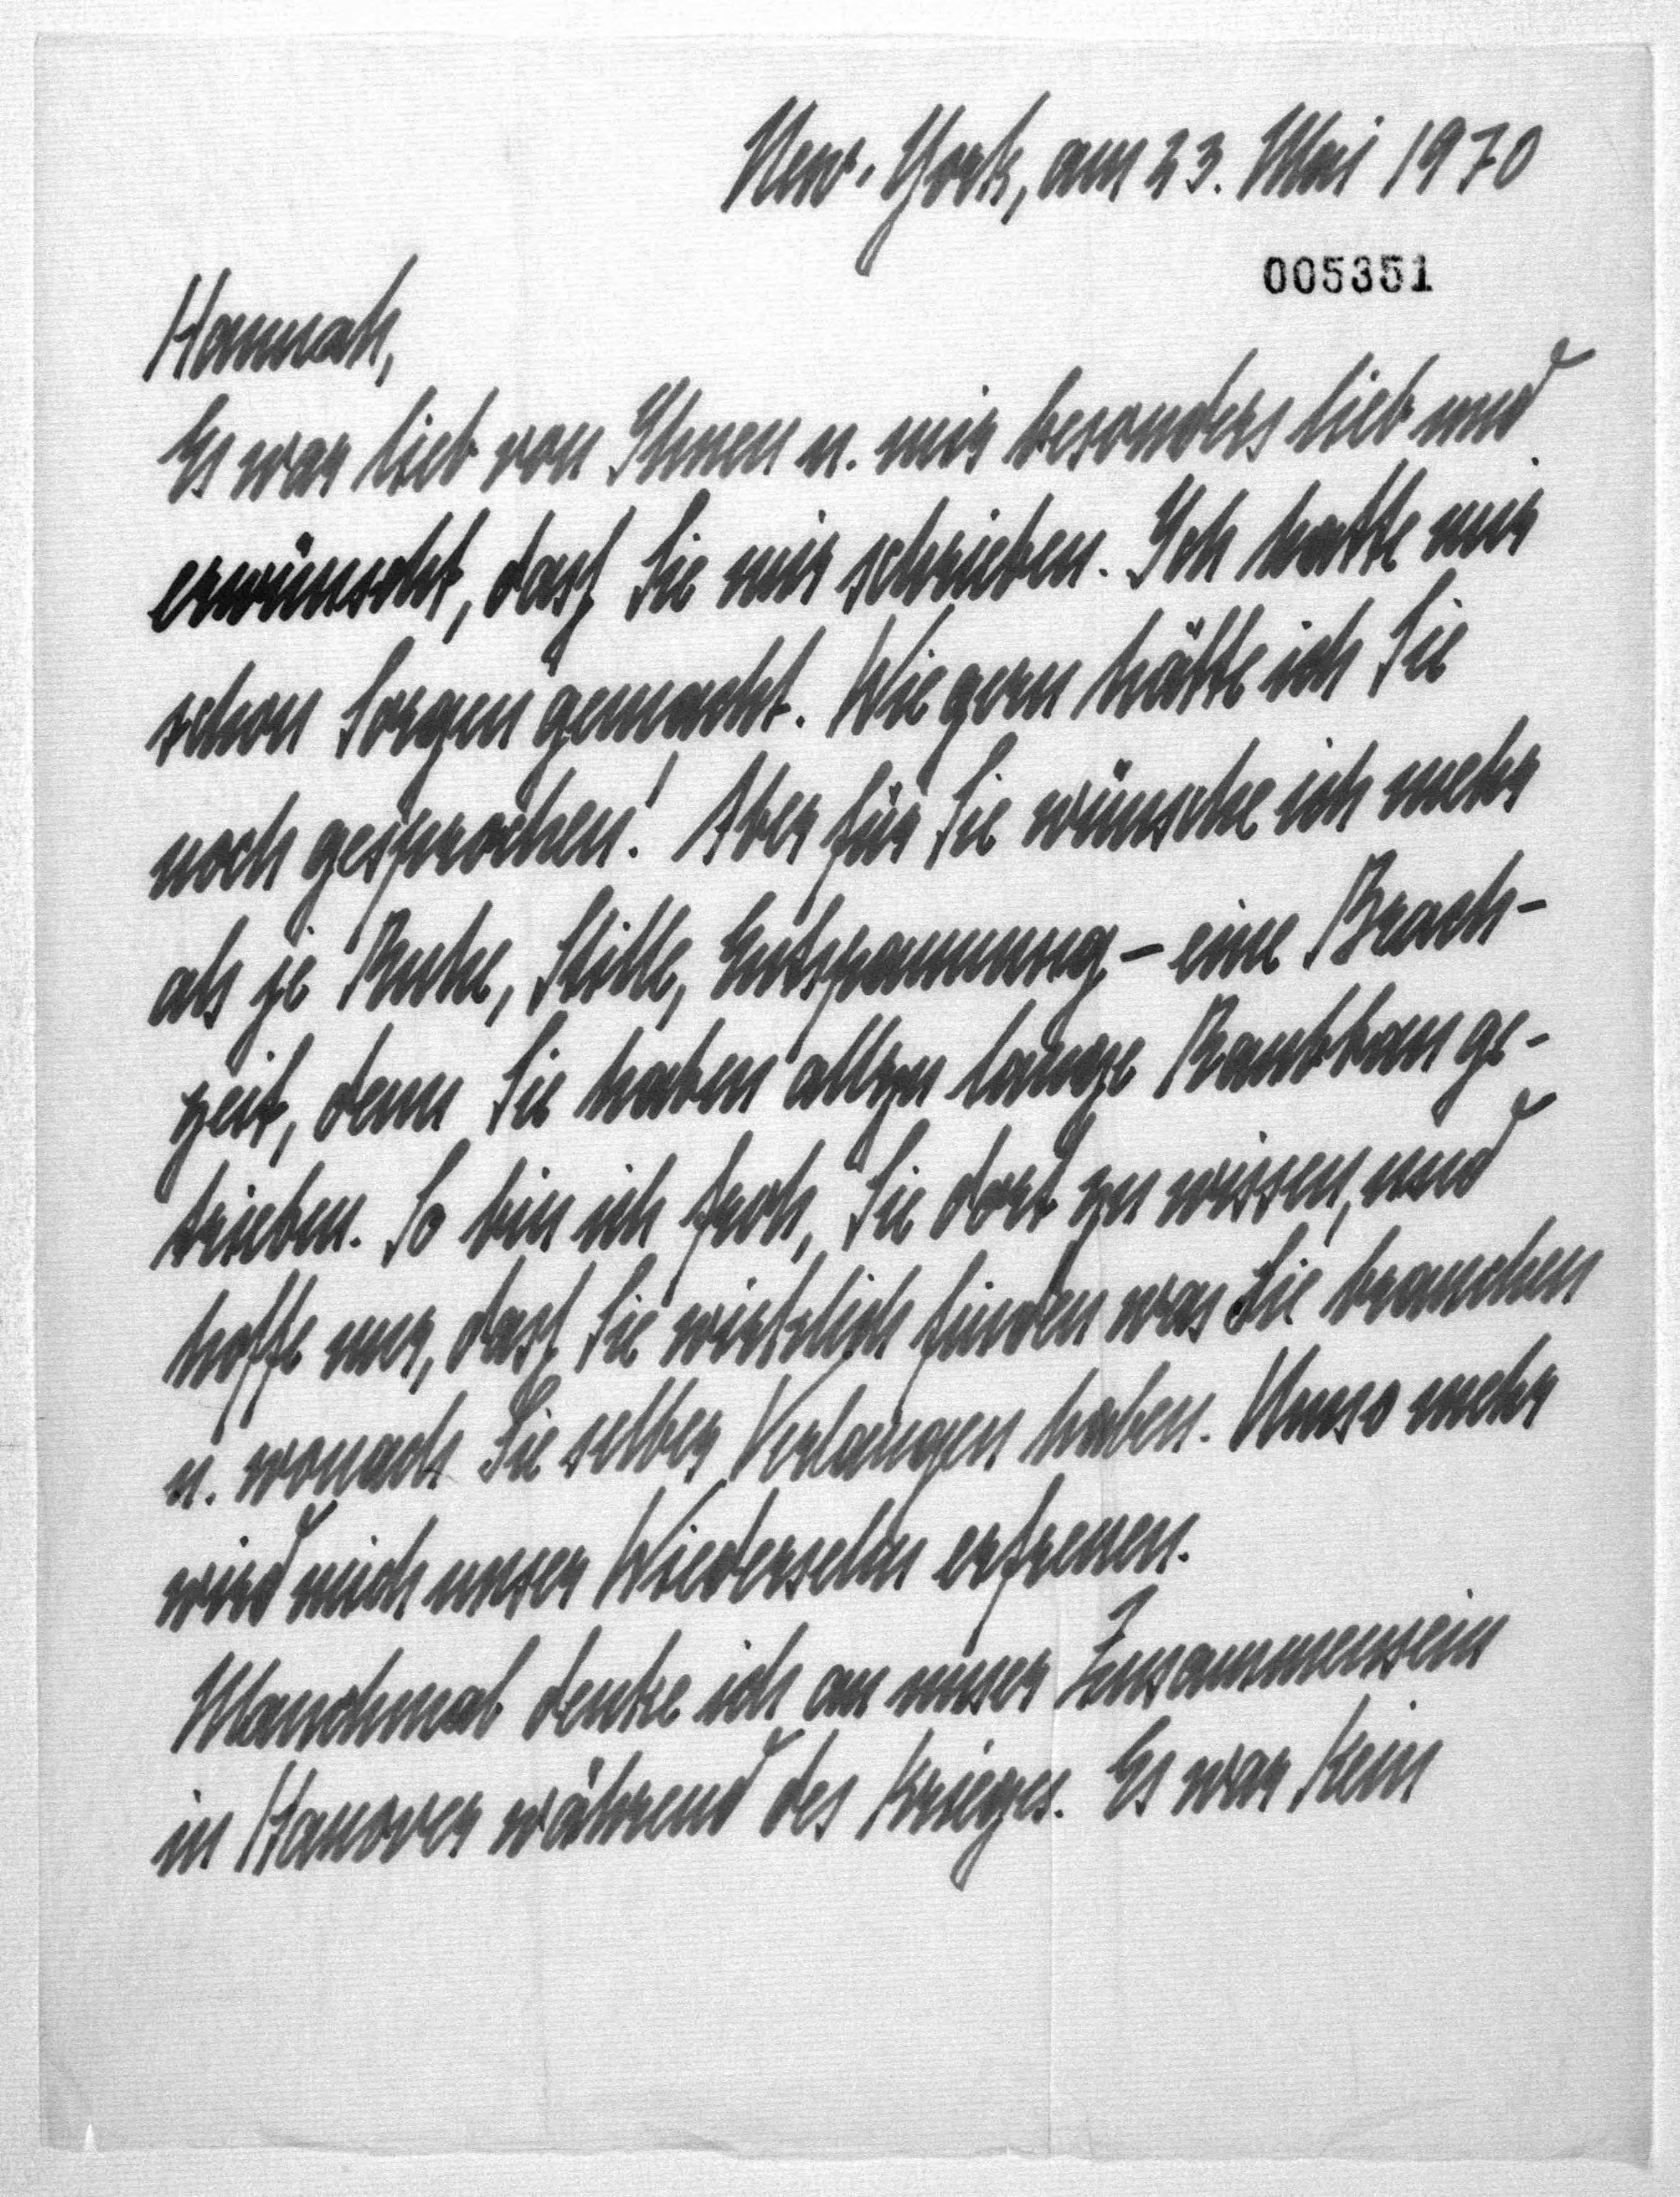 New-York, am 23. Mai 1970
005351
Hannah,
Es war lieb von Ihnen u. mir besonders lieb und
erwünscht, dass Sie mir schrieben. Ich hatte mir
schon Sorgen gemacht. Wie gern hätte ich Sie
noch gesprochen! Aber für Sie wünsche ich mehr
als je Ruhe, Stille, Entspannung – eine Brach-
zeit, denn Sie haben allzu lange Raubbau ge-
trieben. So bin ich froh, Sie dort zu wissen, und
hoffe nur, dass Sie wirklich finden was Sie brauchen
u. wonach Sie selber Verlangen haben. Umso mehr
wird mich unser Wiedersehn erfreuen.
Manchmal denke ich an unser Zusammensein
in Hanover während des Krieges. Es war kein